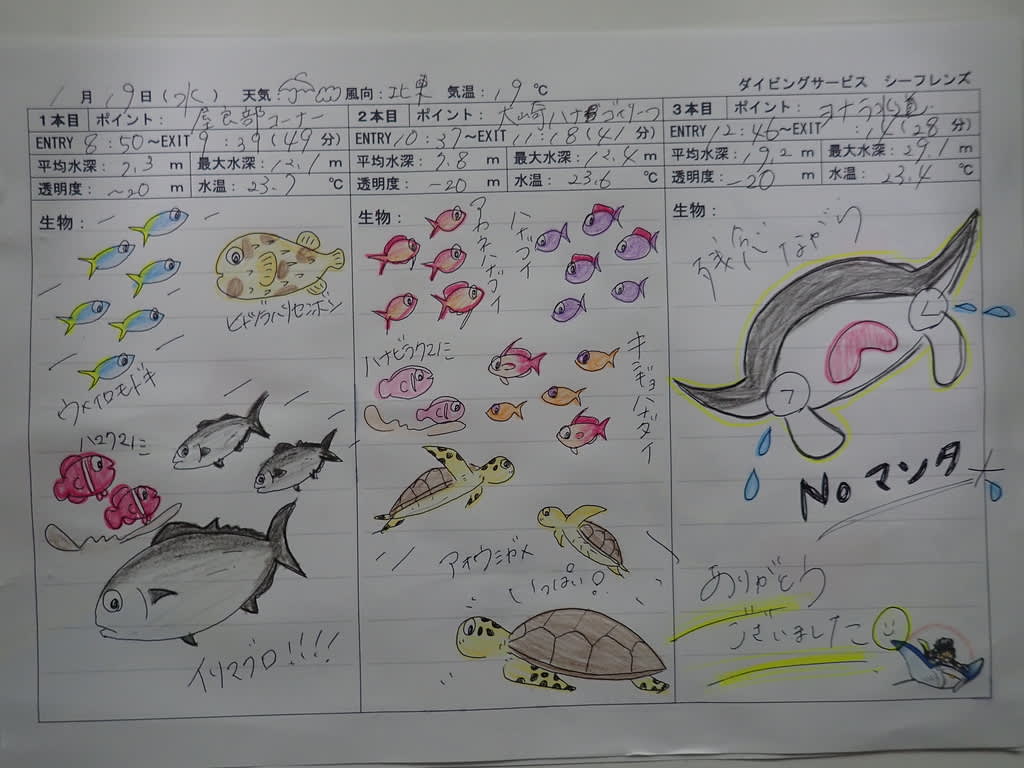 ダイビングサービス シーフレンズ
1月 19日(水) 天気: 風向:北東 気温:19℃
1本目 ポイント: 屋良部コーナー
ENTRY 8:50~EXIT 9:39(49分)
平均水深:7.3m 最大水深:12.1m
透明度:~20m 水温:23.7℃
生物:
ウメイロモドキ
ヒトヅラハリセンボン
ハマクマノミ
イソマグロ!!!!
2本目 ポイント: 大崎ハナゴイリーフ
ENTRY 10:37~EXIT 11:18(41分)
平均水深:7.8m 最大水深:12.4m
透明度:~20m 水温:23.6℃
生物:
アカネハナゴイ
ハナゴイ
ハナビラクマノミ
キンギョハナダイ
アオウミガメ
いっぱい!
3本目 ポイント: ヨナラ水道
ENTRY 12:46~EXIT :14(28分)
平均水深:19.2m 最大水深:29.1m
透明度:~20m 水温:23.4℃
生物:
残念ながら
Noマンタ
ありがとう
ございました